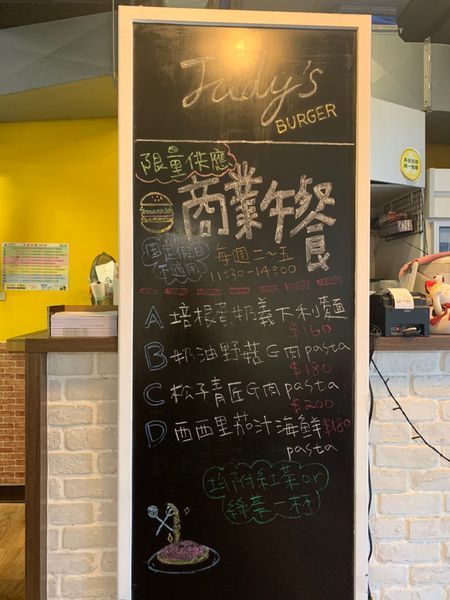 Judy's
BURGER
限量供應
商業午餐
國定假日
不適用
每週二~五
11:30-14:00
A 培根蛋奶義大利麵
$160
B 奶油野菇G肉pasta
$180
C 松子青匠G肉pasta
$200
D 西西里茄汁海鮮 $180
pasta
均附紅茶or
綠茶一杯